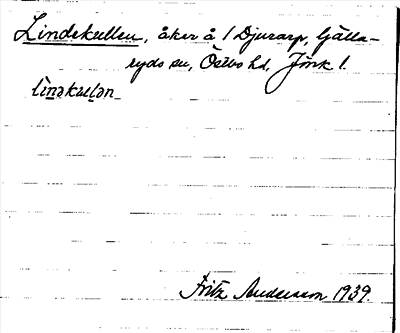 Lindekullen, åker å 1 Djurarp, Gälla-
ryds sn, Östbo hd, Jönk. l.
linəkulən
Fritz Andersson 1939.